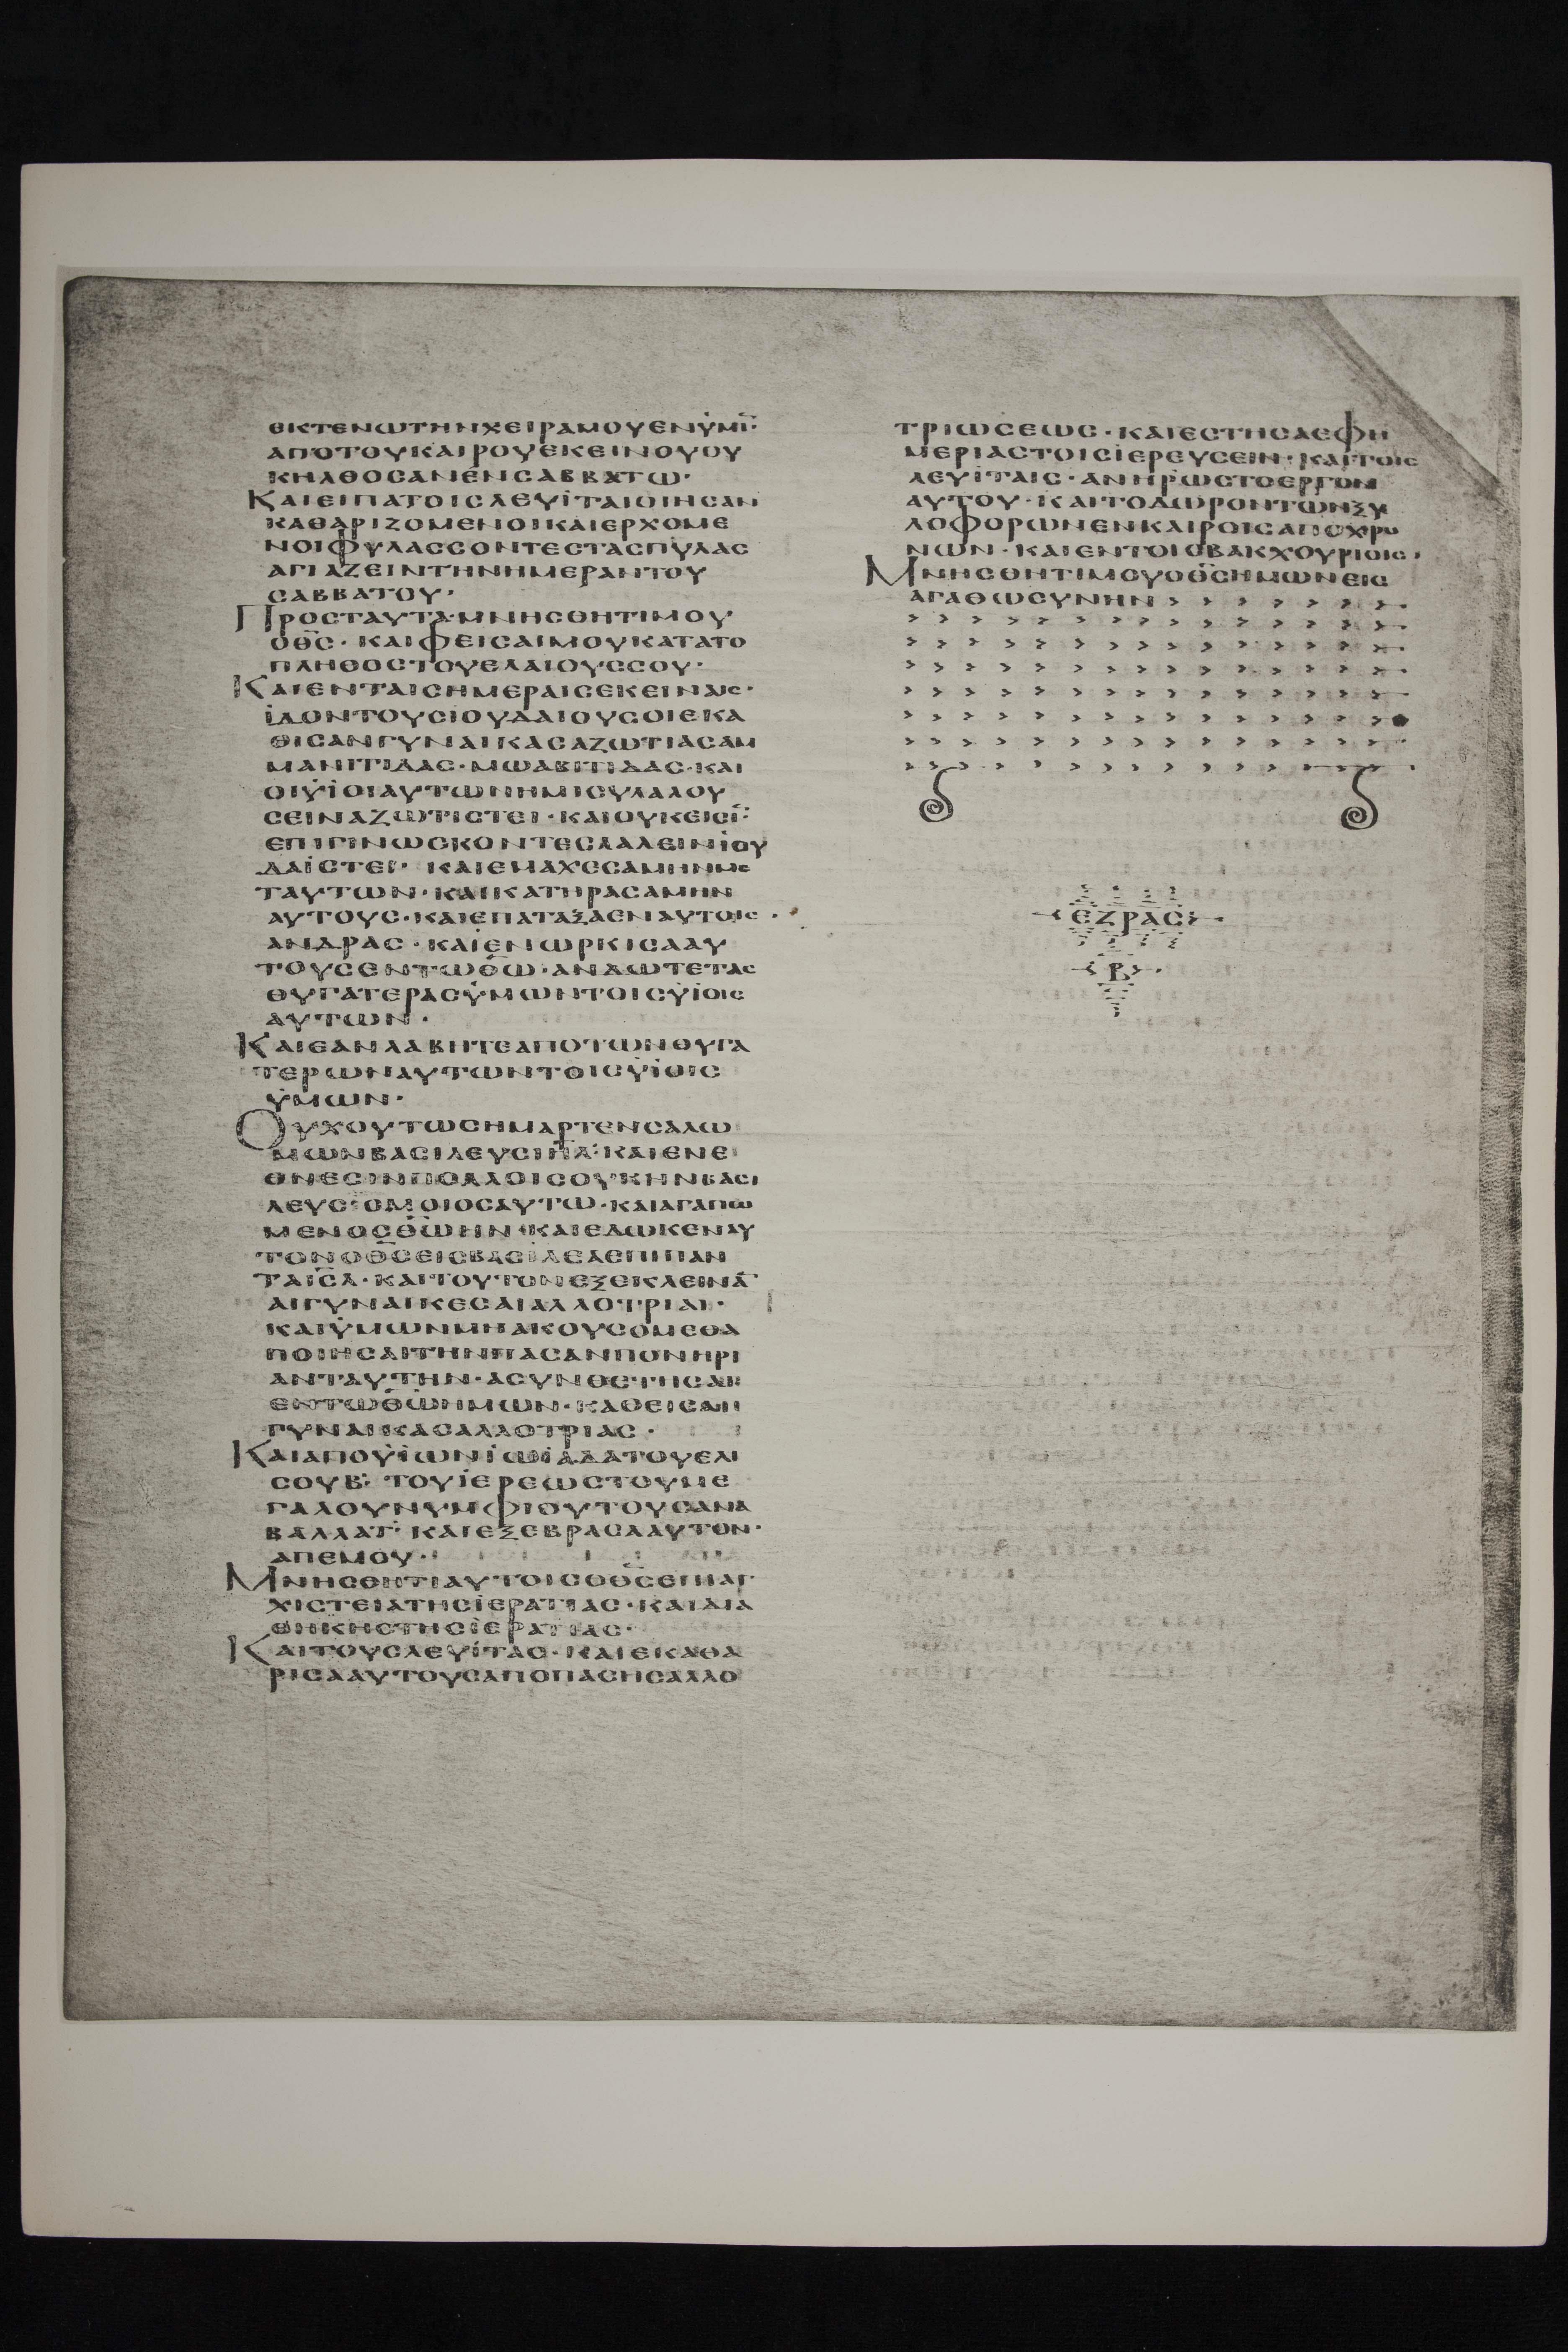 ΘΙΚΤΕΝΩΤΗΝΧΕΙΡΑΜΟΥΕΝΫΜΙ̅·
ΑΠΟΤΟΥΚΑΙΡΟΥΕΚΕΙΝΟΥΟΥ
ΚΗΛΘΟСΑΝΕΝСΑΒΒΑΤΩ·
ΚΑΙΕΙΠΑΤΟΙСΛΕΥΪΤΑΙΟΙΗСΑΝ
ΚΑΘΑΡΙΖΟΜΕΝΟΙΚΑΙΕΡΧΟΜΕ
ΝΟΙΦΥΛΑССΟΝΤΕСΤΑСΠΥΛΑС
ΑΓΙΑΖΕΙΝΤΗΝΗΜΕΡΑΝΤΟΥ
СΑΒΒΑΤΟΥ·
ΠΡΟСΤΑΥΤΑ·ΜΝΗСΘΗΤΙΜΟΥ
ΟΘ̅С̅·ΚΑΙΦΕΙСΑΙΜΟΥΚΑΤΑΤΟ
ΠΛΗΘΟСΤΟΥΕΛΑΙΟΥССΟΥ·
ΚΑΙΕΝΤΑΙСΗΜΕΡΑΙСΕΚΕΙΝΑΙС·
ΪΔΟΝΤΟΥСΙΟΥΔΑΙΟΥСΟΙΕΚΑ
ΘΙСΑΝΓΥΝΑΙΚΑСΑΖΩΤΙΑСΑΜ
ΜΑΝΙΤΙΔΑС·ΜΩΑΒΙΤΙΔΑС·ΚΑΙ
ΟΙΫΪΟΙΑΥΤΩΝΗΜΙСΥΛΑΛΟΥ
СΕΙΝΑΖΩΤΙСΤΕΙ·ΚΑΙΟΥΚΕΙСΙ̅·
ΕΠΙΓΙΝΩСΚΟΝΤΕСΛΑΛΕΙΝΪΟΥ
ΔΑΪСΤΕΙ·ΚΑΙΕΜΑΧΕСΑΜΗΝΜΕ
ΤΑΥΤΩΝ·ΚΑΙΚΑΤΗΡΑСΑΜΗΝ
ΑΥΤΟΥС·ΚΑΙΕΠΑΤΑΞΑΕΝΑΥΤΟΙС·
ΑΝΔΡΑС·ΚΑΙΕΝΩΡΚΙСΑΑΥ
ΤΟΥСΕΝΤΩΘ̅Ω̅·ΑΝΔΩΤΕΤΑС
ΘΥΓΑΤΕΡΑСΫΜΩΝΤΟΙСΫΪΟΙС
ΑΥΤΩΝ·
ΚΑΙΕΑΝΛΑΒΗΤΕΑΠΟΤΩΝΘΥΓΑ
ΤΕΡΩΝΑΥΤΩΝΤΟΙСΫΪΟΙС
ΫΜΩΝ·
ΟΥΧΟΥΤΩСΗΜΑΡΤΕΝСΑΛΩ
ΜΩΝΒΑСΙΛΕΥСΙ̅Η̅Λ̅·ΚΑΙΕΝΕ
ΘΝΕСΙΝΠΟΛΛΟΙСΟΥΚΗΝΒΑСΙ
ΛΕΥСΟΜΟΙΟСΑΥΤΩ·ΚΑΙΑΓΑΠΩ
ΜΕΝΟСΘ̅Ω̅ΗΝ·ΚΑΙΕΔΩΚΕΝΑΥ
ΤΟΝΟΘ̅С̅ΕΙСΒΑСΙΛΕΑΕΠΙΠΑΝ
ΤΑΙ̅СΛ̅·ΚΑΙΤΟΥΤΟΝΕΞΕΚΛΕΙΝΑ̅
ΑΙΓΥΝΑΙΚΕСΑΙΑΛΛΟΤΡΙΑΙ·
ΚΑΙΫΜΩΝΜΗΑΚΟΥСΟΜΕΘΑ
ΠΟΙΗСΑΙΤΗΝΠΑСΑΝΠΟΝΗΡΙ
ΑΝΤΑΥΤΗΝ·ΑСΥΝΘΕΤΗСΑΙ
ΕΝΤΩΘ̅Ω̅ΗΜΩΝ·ΚΑΘΕΙСΑΙ
ΓΥΝΑΙΚΑСΑΛΛΟΤΡΙΑС·
ΚΑΙΑΠΟΫΪΩΝΪΩΪΑΔΑΤΟΥΕΛΙ
СΟΥΒ·ΤΟΥΪΕΡΕΩСΤΟΥΜΕ
ΓΑΛΟΥΝΥΜΦΙΟΥΤΟΥСΑΝΑ
ΒΑΛΛΑΤ·ΚΑΙΕΞΕΒΡΑСΑΑΥΤΟΝ·
ΑΠΕΜΟΥ·
ΜΝΗСΘΗΤΙΑΥΤΟΙСΟΘ̅С̅ΕΠΙΑΓ
ΧΙСΤΕΙΑΤΗСΪΕΡΑΤΙΑС·ΚΑΙΔΙΑ
ΘΗΚΗСΤΗСΪΕΡΑΤΙΑС·
ΚΑΙΤΟΥСΛΕΥΪΤΑС·ΚΑΙΕΚΑΘΑ
ΡΙСΑΑΥΤΟΥСΑΠΟΠΑСΗСΑΛΛΟ
ΤΡΙΩСΕΩС·ΚΑΙΕСΤΗСΑΕΦΗ
ΜΕΡΙΑСΤΟΙСΪΕΡΕΥСΕΙΝ·ΚΑΙΤΟΙС
ΛΕΥΪΤΑΙС·ΑΝΗΡΩСΤΟΕΡΓΟΝ
ΑΥΤΟΥ·ΚΑΙΤΟΔΩΡΟΝΤΩΝΞΥ
ΛΟΦΟΡΩΝΕΝΚΑΙΡΟΙСΑΠΟΧΡΟ
ΝΩΝ·ΚΑΙΕΝΤΟΙСΒΑΚΧΟΥΡΙΟΙС·
ΜΝΗСΘΗΤΙΜΟΥΟΘ̅С̅ΗΜΩΝΕΙС
ΑΓΑΘΩСΥΝΗΝ
ΕΖΡΑС
Β